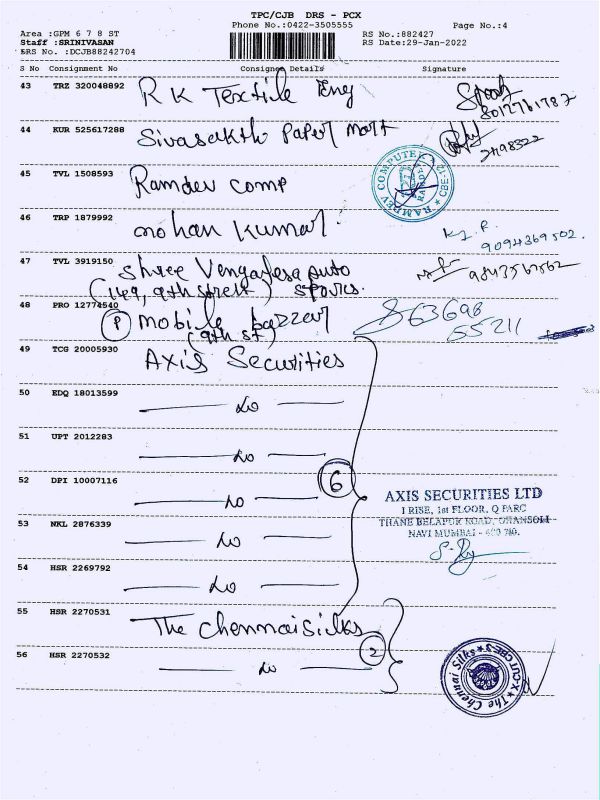 TPC/CJB DRS - PCX
Phone No.:0422-3505555
Page No.:4
Area :GPM 6 7 8 ST
RS No.:882427
Staff :SRINIVASAN
RS Date:29-Jan-2022
DRS No. :DCJB88242704
S No Consignment No Consignee Details Signature
43 TRZ 320048892 R K Textile Eng
8012761787
44 KUR 525617288 Sivasakthi Paper Mart
45 TVL 1508593 Ramdev comp
RAMDEV COMPUTER
46 TRP 1879992 mohan kumar.
9094369502.
47 TVL 3919150 Shree Vengatesa auto
(149, 9th street) Spares.
9843567562
48 PRO 12774540 (P) mobile bazzar
(9th st)
863698
55211
49 TCG 20005930 Axis Securities
50 EDQ 18013599 — do —
51 UPT 2012283 — do —
52 DPI 10007116 — do —
6
53 NKL 2876339 — do —
AXIS SECURITIES LTD
I RISE, 1st FLOOR, Q PARC
THANE BELAPUR ROAD, GHANSOLI
NAVI MUMBAI -
54 HSR 2269792 — do —
55 HSR 2270531 The Chennai Silks
2
56 HSR 2270532 — do —
The Chennai Silks